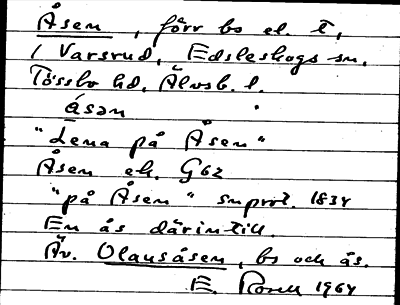 Åsen, förr bo el. t,
i Varsrud, Edsleskogs sn,
Tössbo hd, Älvsb. l.
åsən
"Lena på Åsen"
Åsen ek. G62
"på Åsen" snprot. 1834
En ås därintill.
Äv. Olausåsen, bs och ås.
E. 1964